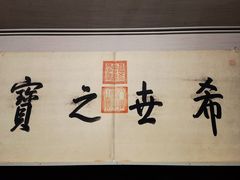 希世之寶